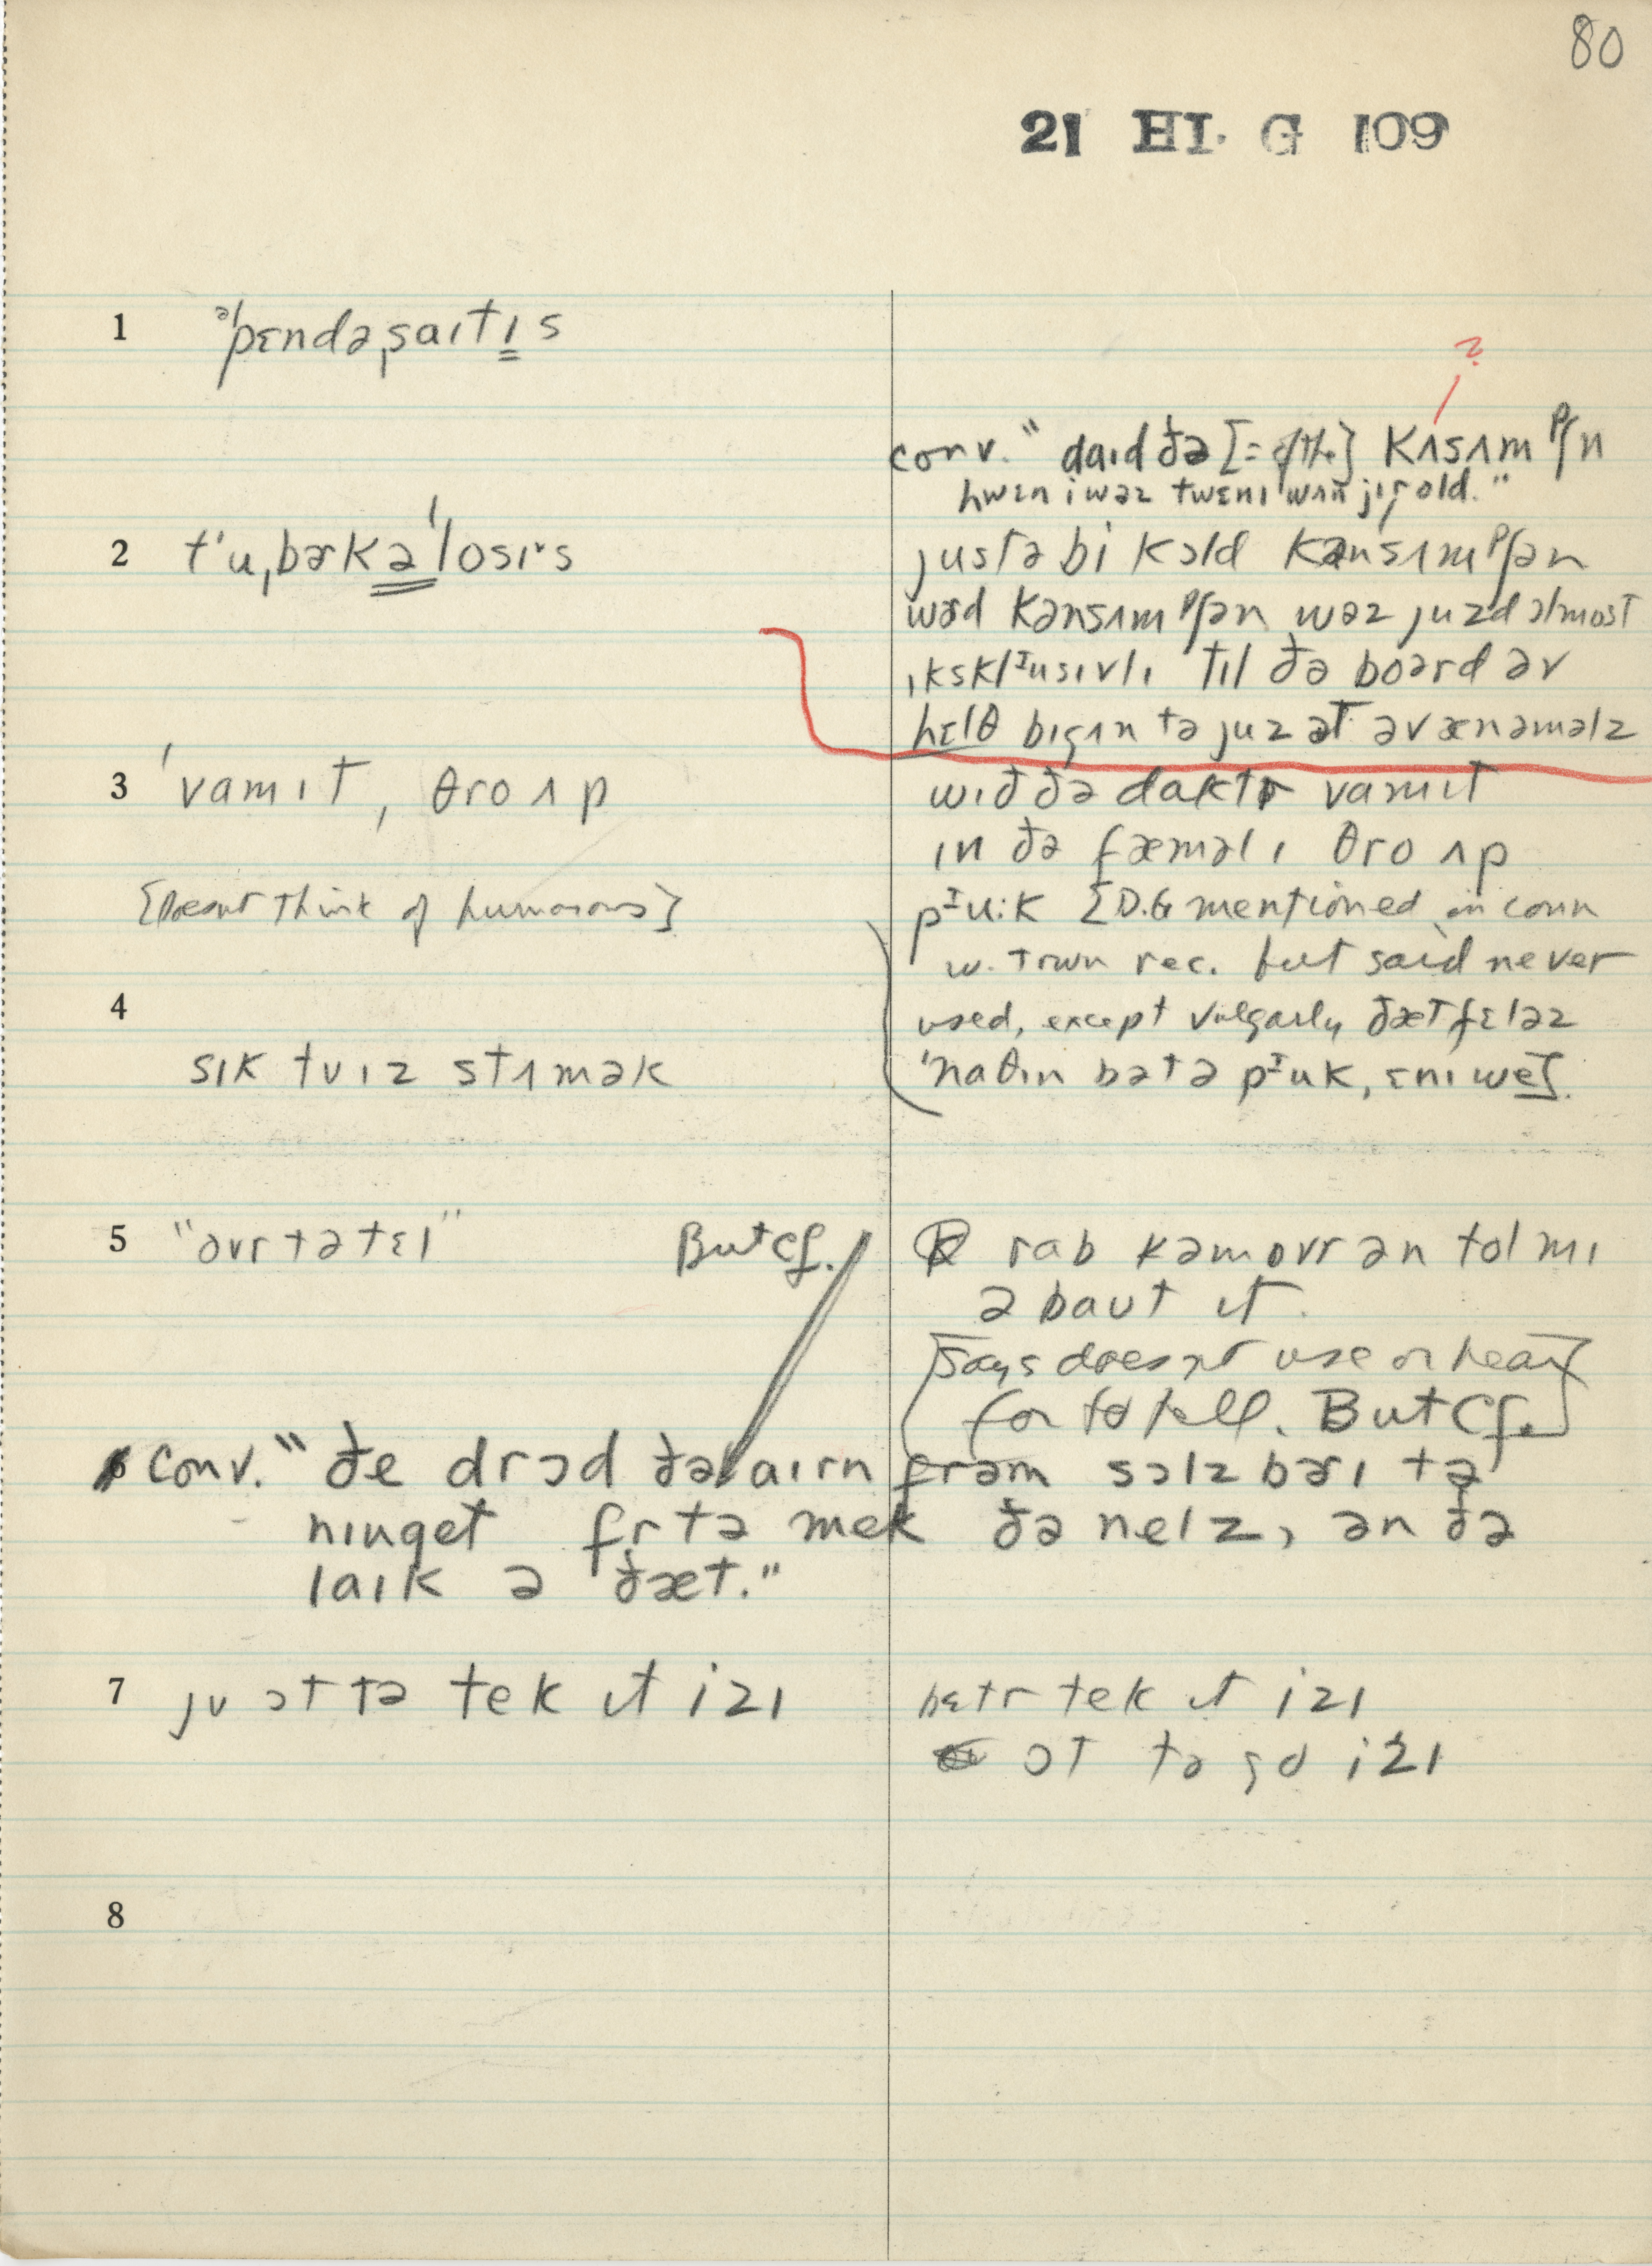 80
21 HI. G 109
1 əˈpɛndəˌsaɪtɪs
?
conv. "daɪd ðə [= of the] kʌsʌmᵖʃn
hwɛn i wəz twɛnɪ wʌn jɪr old."
2 tˈuˌbɚkəˈlosɪˑs
justə bi kɔld kənsʌmᵖʃən
wɚd kənsʌmᵖʃən wəz juzd ɔlmost
ɪksklᶦusɪvlɪ tɪl ðə boərd əv
hɛlθ bɪgɪn tə juz ət əv ænəməlz
3 ˈvamɪt, θro ʌp
wɪð ðə daktr vamɪt
ɪn ðə fæməlɪ θro ʌp
[Doesn't think of humorous]
pᶦu:k [D.G mentioned in conn
w. town rec. but said never
4
used, except vulgarly, ðæt fɛləz
ˈnaθɪn bət ə pᶦuk, ɛnɪwe].
sɪk tʊ ɪz stʌmək
5 "ovr tə tɛl" But cf.
rab kəm ovr ən tol mɪ
əbaut ɪt.
[Says doesn't use or hear
for to tell. But Cf.]
6 conv. "ðe drɔd ðə aɪrn frəm sɔlzbɚɪ tə
nɪuget fr tə mek ðə nelz, ən ðə
laɪk ə ðæt."
7 jʊ ɔt tə tek ɪt izɪ
bɛtr tek ɪt izɪ
ɔt tə go izɪ
8